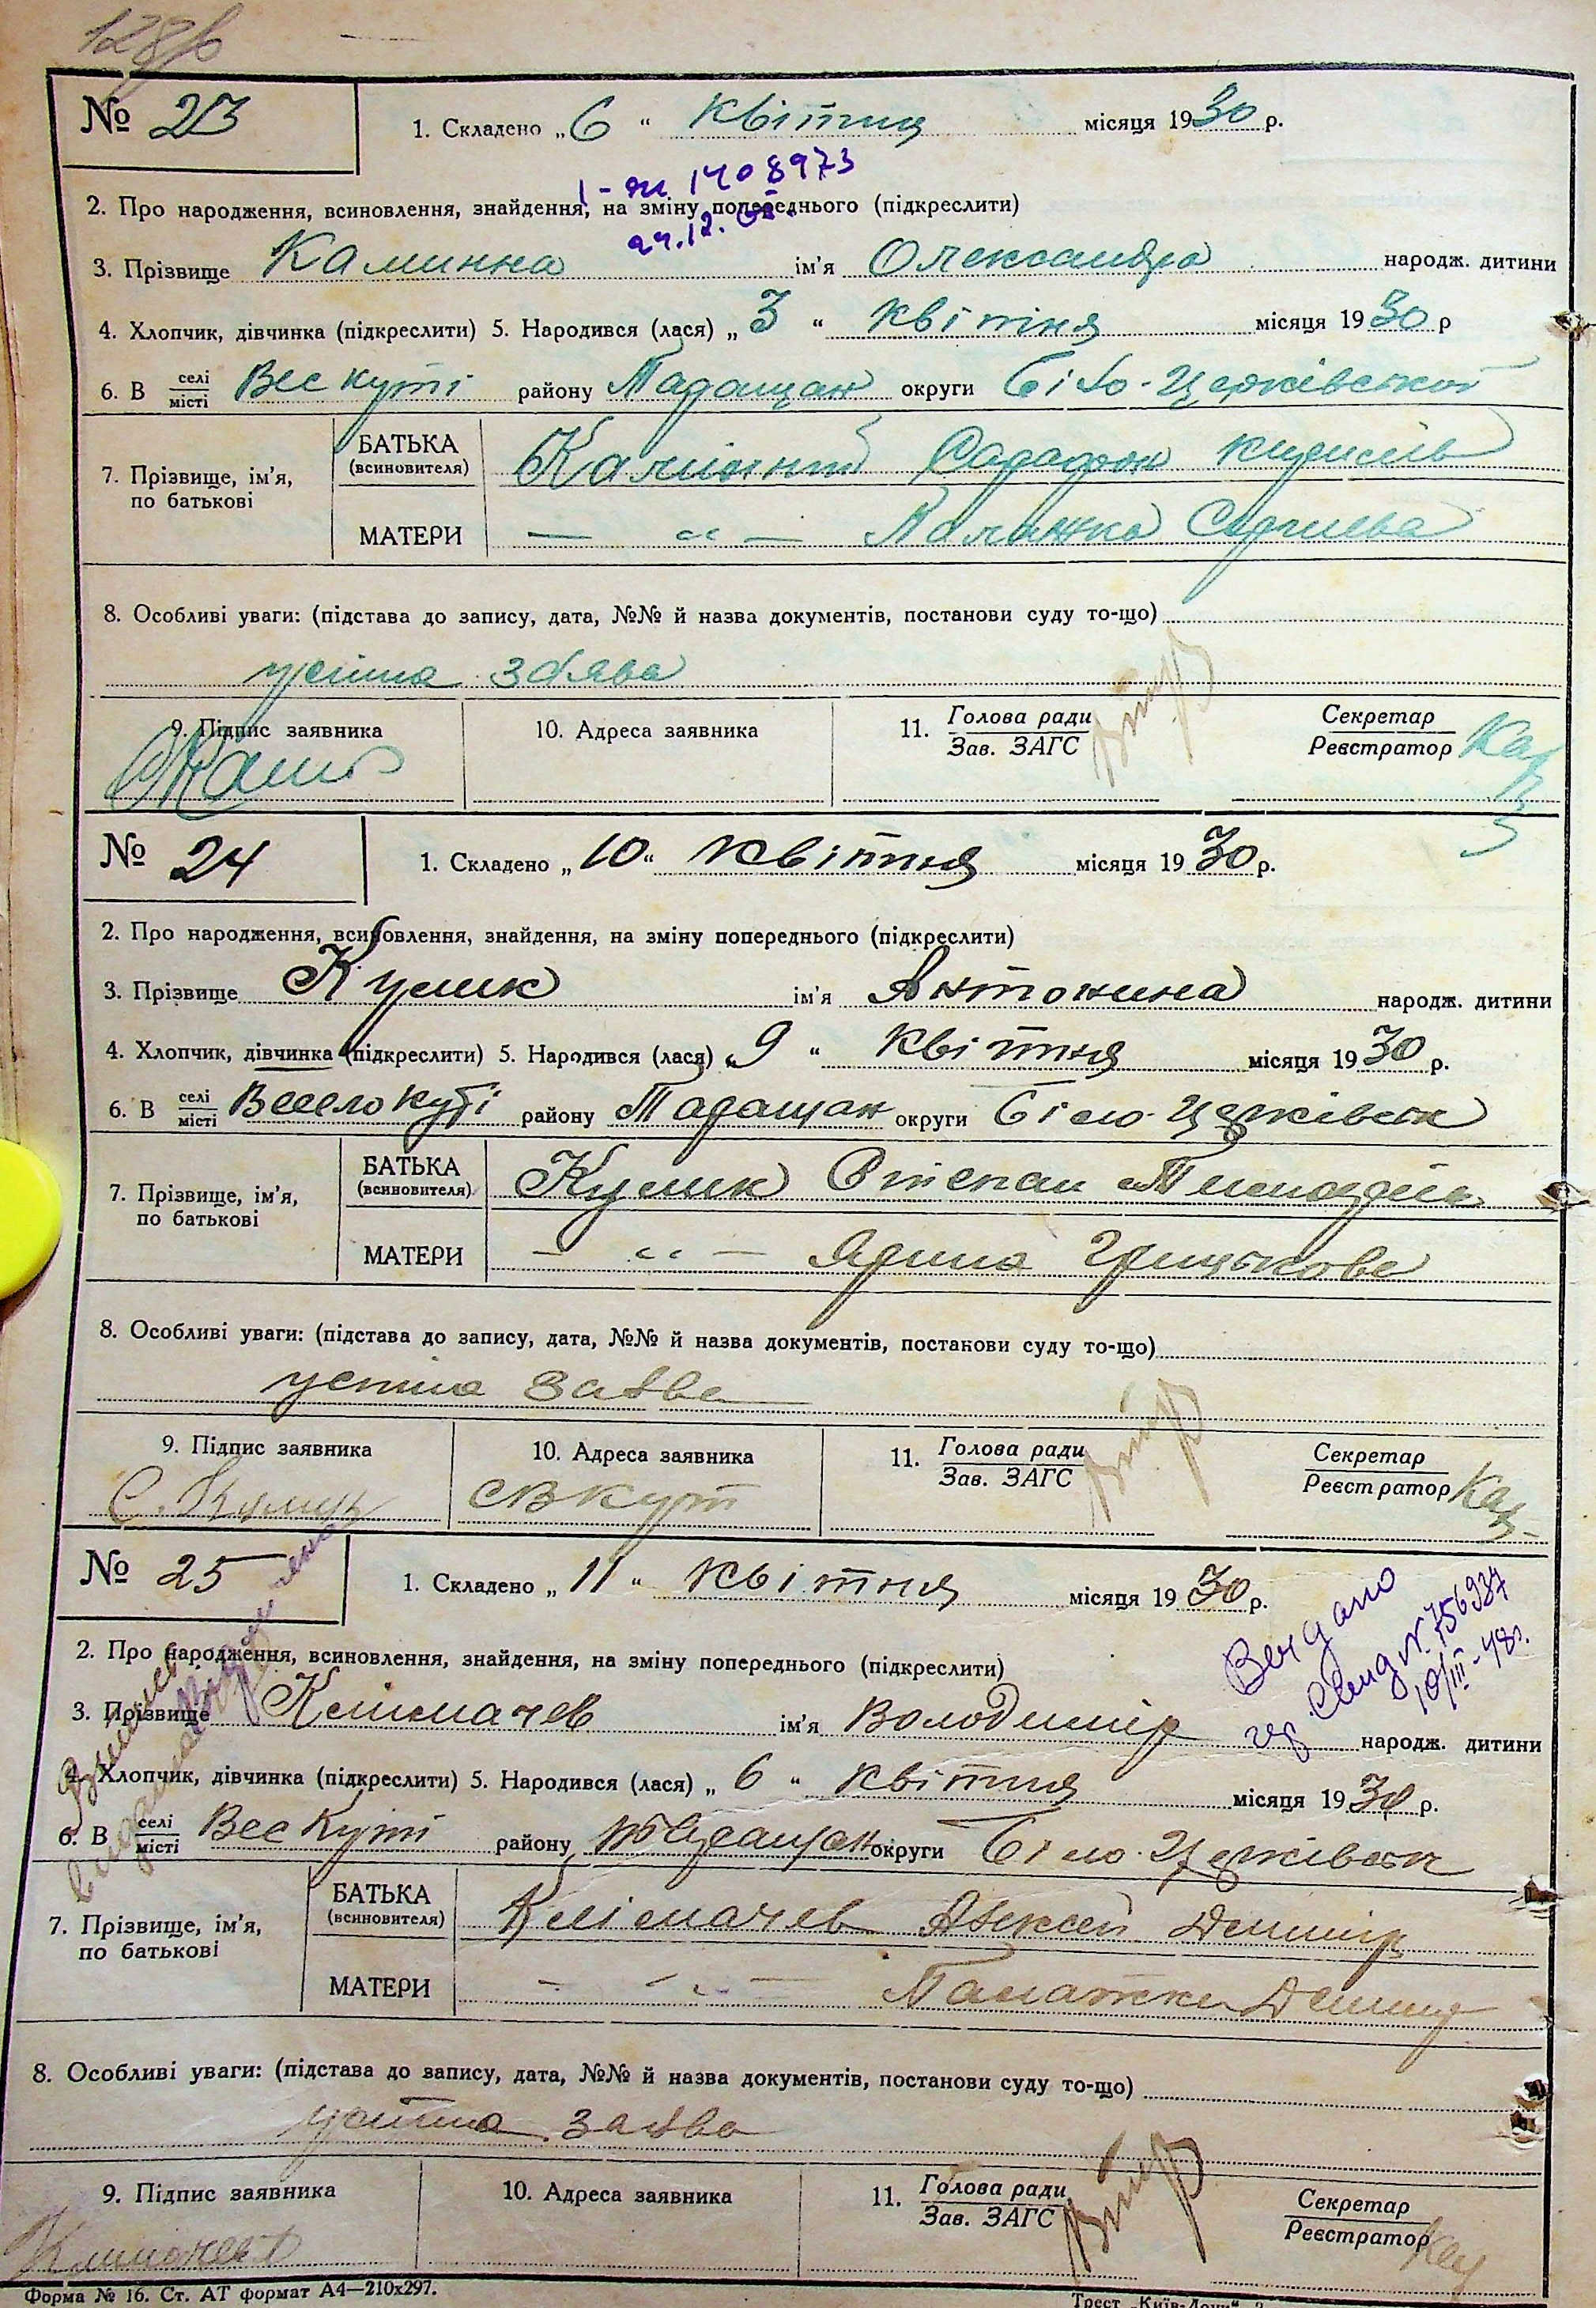 № 23
1. Складено „6“ Квітня місяця 1930 р.
1408973
2. Про народження, всиновлення, знайдення, на зміну попереднього (підкреслити)
3. Прізвище Каминна ім'я Олександра народж. дитини
4. Хлопчик, дівчинка (підкреслити) 5. Народився (лася) „3“ квітня місяця 1930 р
6. В селі/місті Вес куті району Таращан округи Біло-Церківської
7. Прізвище, ім'я, по батькові
БАТЬКА (всиновителя)
МАТЕРИ — „ —
8. Особливі уваги: (підстава до запису, дата, №№ й назва документів, постанови суду то-що)
устна
9. Підпис заявника
10. Адреса заявника
11. Голова ради
Зав. ЗАГС
Секретар
Реєстратор
№ 24
1. Складено „10“ квітня місяця 1930 р.
2. Про народження, всиновлення, знайдення, на зміну попереднього (підкреслити)
3. Прізвище Кулик ім'я Антонина народж. дитини
4. Хлопчик, дівчинка (підкреслити) 5. Народився (лася) „9“ квітня місяця 1930 р.
6. В селі/місті Весело куті району Таращан округи Біло-Церківськ
7. Прізвище, ім'я, по батькові
БАТЬКА (всиновителя) Кулик Степан
МАТЕРИ — „ — Ярина Грицькова
8. Особливі уваги: (підстава до запису, дата, №№ й назва документів, постанови суду то-що)
устна заява
9. Підпис заявника
10. Адреса заявника
11. Голова ради
Зав. ЗАГС
Секретар
Реєстратор
С. Кулик
СВкут
№ 25
1. Складено „11“ квітня місяця 1930 р.
2. Про народження, всиновлення, знайдення, на зміну попереднього (підкреслити)
Свид №756937
10/III-48г.
3. Прізвище Клімачев ім'я Володимір народж. дитини
4. Хлопчик, дівчинка (підкреслити) 5. Народився (лася) „6“ квітня місяця 1930 р.
6. В селі/місті Вес Куті району Таращан округи Біло-Церківськ
7. Прізвище, ім'я, по батькові
БАТЬКА (всиновителя) Клімачев Алексей
МАТЕРИ — „ —
8. Особливі уваги: (підстава до запису, дата, №№ й назва документів, постанови суду то-що)
устна заява
9. Підпис заявника
10. Адреса заявника
11. Голова ради
Зав. ЗАГС
Секретар
Реєстратор
Форма № 16. Ст. АТ формат А4—210х297.